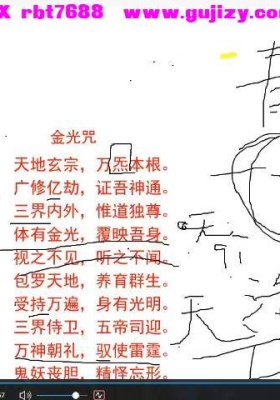 X rbt7688 www.gujizy.com
金光咒
天地玄宗，万炁本根。
广修亿劫，证吾神通。
三界内外，惟道独尊。
体有金光，覆映吾身。
视之不见，听之不闻。
包罗天地，养育群生。
受持万遍，身有光明。
三界侍卫，五帝司迎。
万神朝礼，驭使雷霆。
鬼妖丧胆，精怪忘形。
天